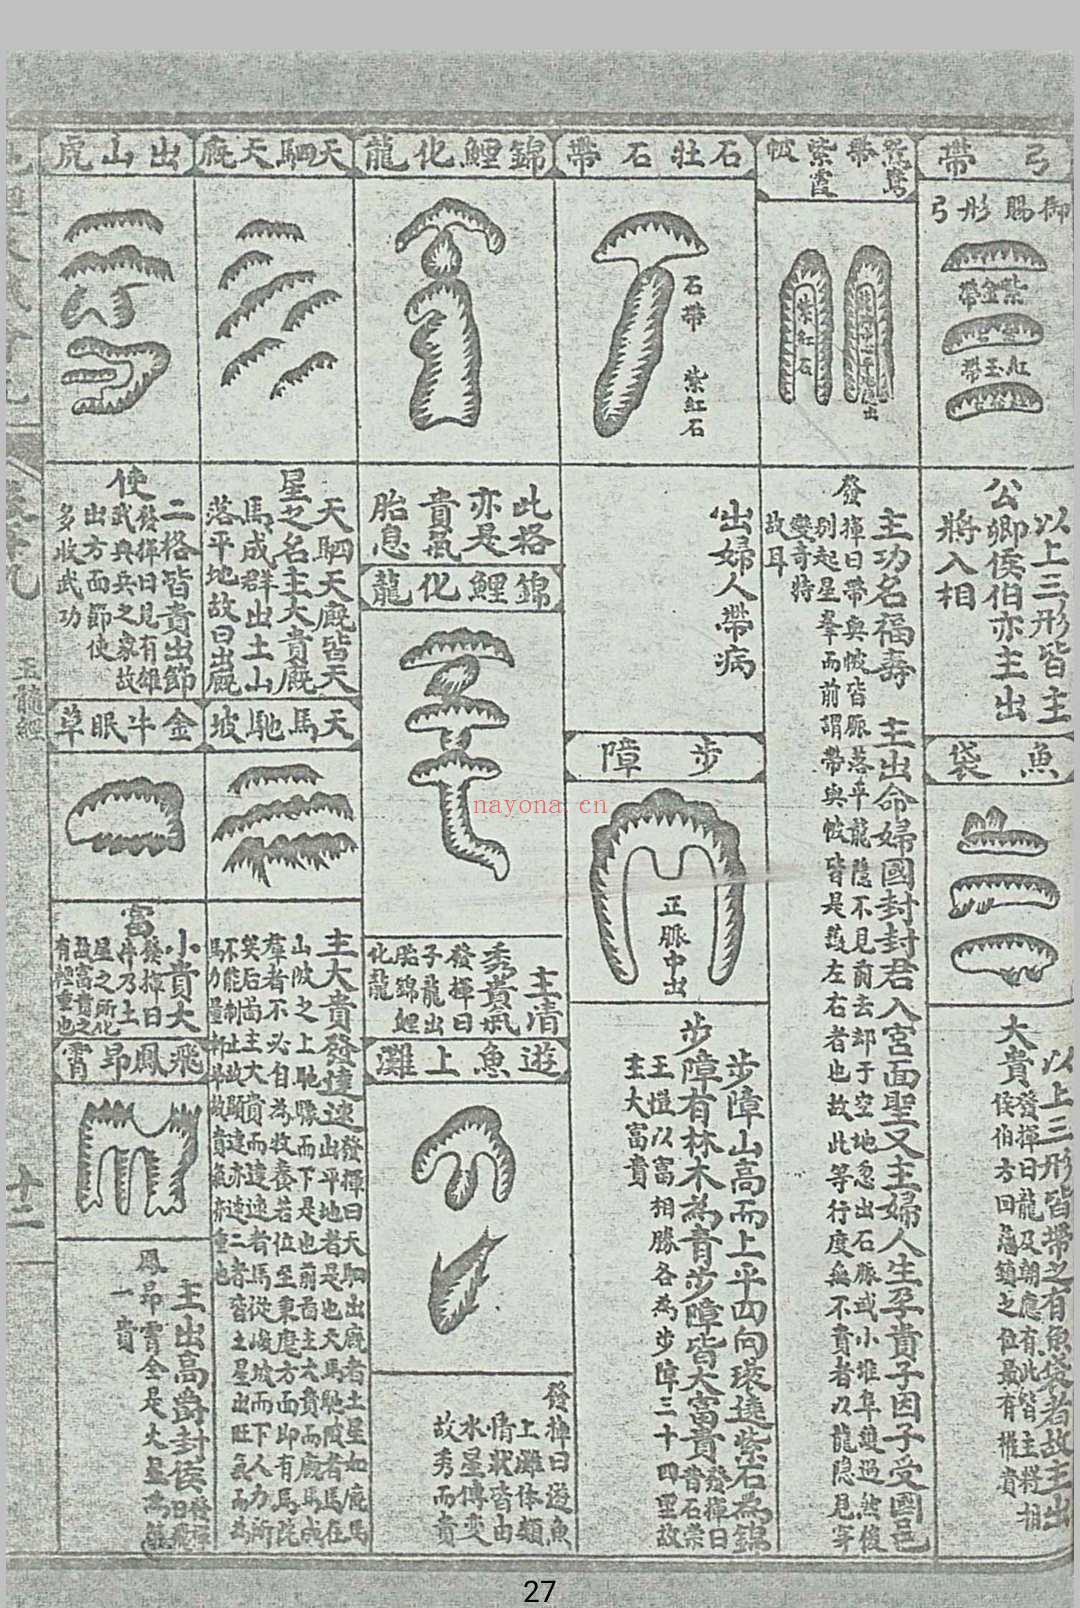 弓帶
御賜彤弓
紫金帶
紅玉帶
以上三形皆主
公卿侯伯亦主出
將入相
魚袋
以上三形皆帶之有魚袋者故主出
大貴
發揮曰龍及朝應有此皆主將相
侯伯方回
之位最有權貴
紫霞帔
紫紅石
主功名福壽 主出命婦國封封君入宮面聖又主婦人生孕貴子因子受國邑
發揮曰帶與帔皆脈落平龍隱不見前去却于空地忽出石脈或小堆阜雙過然後
別起星峯而前謂帶與帔皆是
左右者也故此等行度無不貴者以龍隱見字
變奇特
故耳
石牡石帶
石帶 紫紅石
出婦人帶病
步障
正脈中出
步障山高而上平四向
遶紫石為錦
步障有林木為青步障皆大富貴
發揮曰
昔石崇
王愷以富相勝各為步障三十四里故
主大富貴
錦鯉化龍
此格
亦是
貴氣
胎息
錦鯉化龍
主清
秀貴氣
發揮曰
子龍出
胎錦鯉
化龍
遊魚上灘
發揮曰遊魚
上灘体類
情狀皆由
水星傳變
故秀而貴
天駟天廐
天駟天廐皆天
星之名主大貴廐
馬成群出土山
落平地故曰出廐
天馬馳坡
主大貴發達速
發揮曰天駟出廐者土星如廐馬
出平地者是也天馬馳坡者馬在
山坡之上馳驟而下是也前面主大貴而廐馬成
羣者不必自為牧養若位至東麾方面即有馬陀
矣后崗主大貴而達速者馬從峻坡而下人力所
不能制止故顯達亦速二者皆土星出旺氣而為
馬力量
故貴氣亦重也
出山虎
二格皆貴出節
使
發揮曰見有雄
武典兵之象故
出方面節使
多收武功
金牛眠草
小貴大
富
發揮曰
牛乃土
星之所化
故富貴之
有輕重也
飛鳳昂霄
主出高爵封侯
發揮
曰飛
鳳昂霄全是火星為龍
一貴
玉髓經
十二
nayona.cn
27